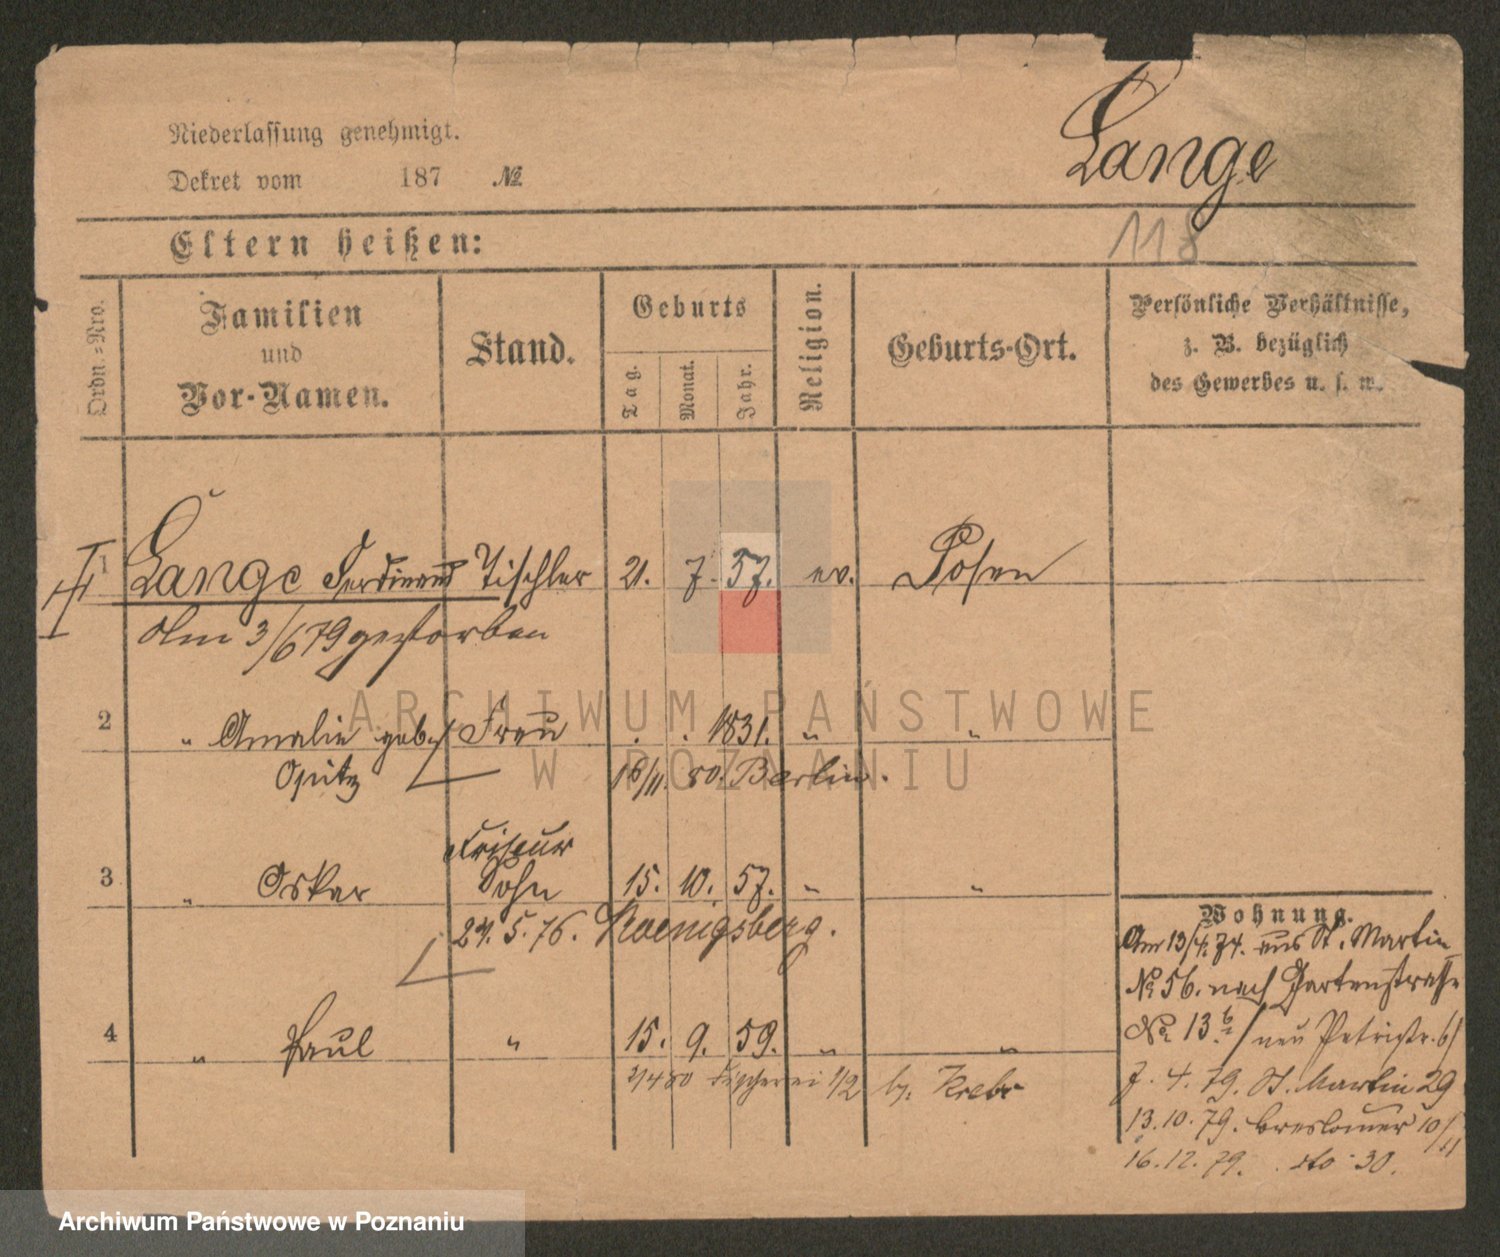 Niederlassung genehmigt.
Lange
Dekret vom 187 №
118
Eltern heißen:
Ordn.=Nro.
Familien
und
Vor-Namen.
Stand.
Geburts
Tag.
Monat.
Jahr.
Religion.
Geburts-Ort.
Persönliche Verhältnisse,
z. B. bezüglich
des Gewerbes u. s. w.
1 Lange Ferdinand Tischler 21. 7. 57. ev. Posen
Am 3/6 79 gestorben
ARCHIWUM PAŃSTWOWE
W POZNANIU
2 " Amalie geb. Frau . . 1831. " "
Opitz 18/11. 80. Berlin.
Friseur
3 " Oskar Sohn 15. 10. 57. " "
24. 5. 76. Koenigsberg.
Wohnung.
Am 13/4. 74. aus St. Martin
№ 56. nach Gartenstrasse
4 " Paul " 15. 9. 59. " "
№ 13 b / neu Petristr. 6/
2/4 80 Fischerei 1/2 bj. Krebs
7. 4. 79. St. Martin 29
13. 10. 79. Breslauer 10/11
16. 12. 79. dto 30.
Archiwum Państwowe w Poznaniu